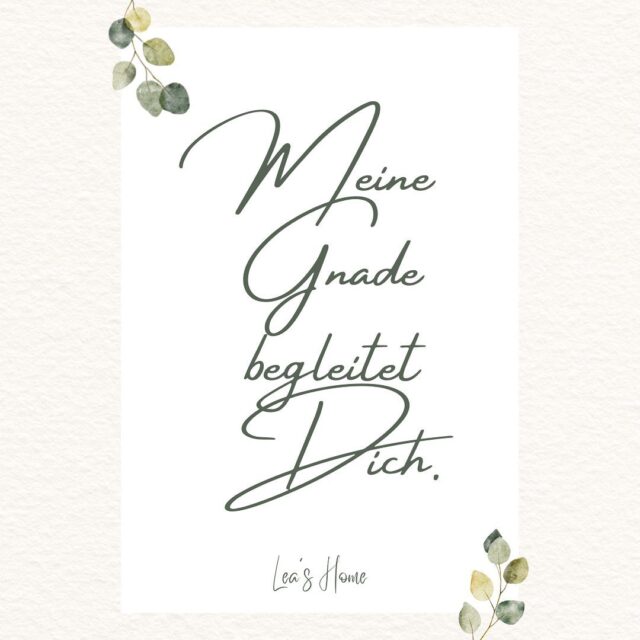 Meine
Gnade
begleitet
Dich.
Lea's Home